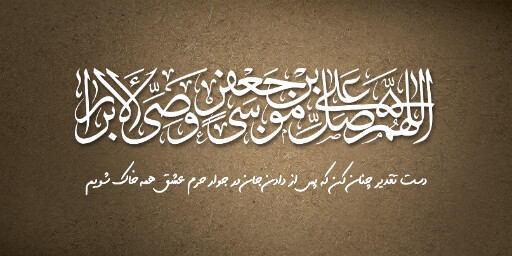 اللهم صل علی موسی بن جعفر وصی الابرار
دست تقدیر چنان کن که پس از دادن جان در جوار حرم عشق همه خاک شویم